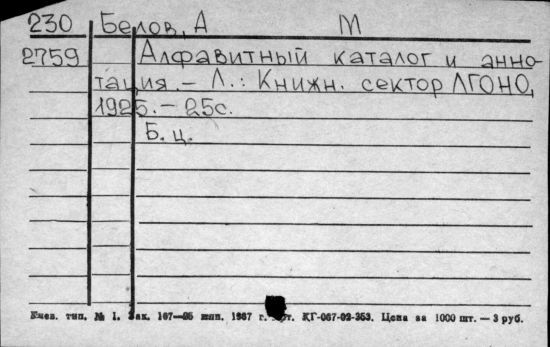 230 Белов, А М
2759 Алфавитный каталог и анно-
тация. – Л.: Книжн. сектор ЛГОНО,
1925. – 25с.
Б. ц.
тип. № 1. Зак. 167—25 1987 г. КГ-067-02-353. Цена за 1000 шт. — 3 руб.